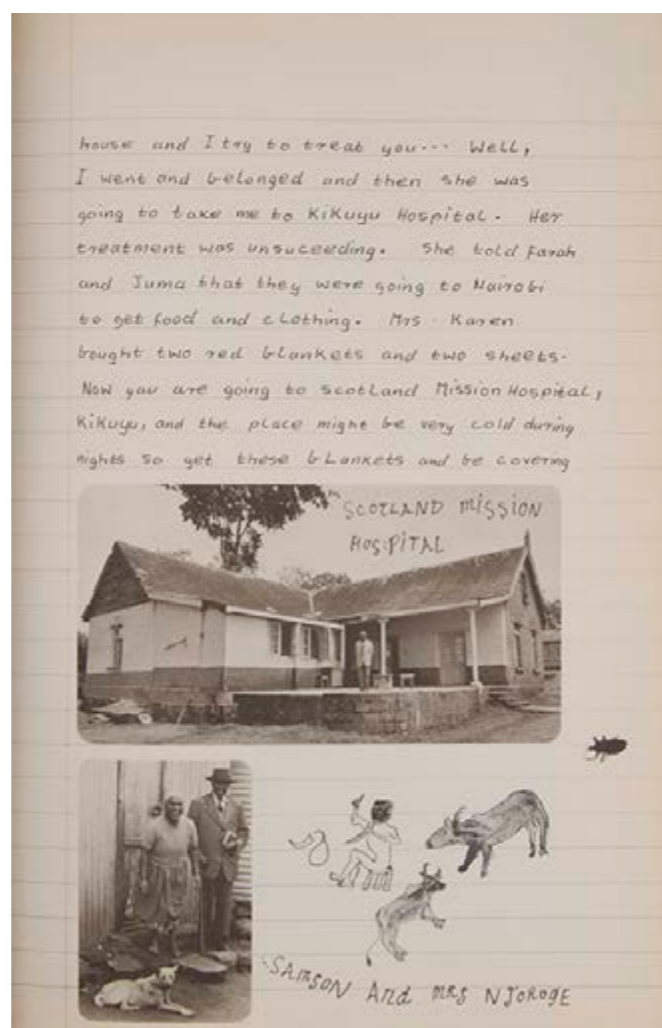 house and I try to treat you... Well,
I went and belonged and then she was
going to take me to Kikuyu Hospital. Her
treatment was unsuceeding. She told Farah
and Juma that they were going to Nairobi
to get food and clothing. Mrs. Karen
bought two red blankets and two sheets.
Now you are going to Scotland Mission Hospital,
Kikuyu, and the place might be very cold during
nights so get these blankets and be covering
SCOTLAND MISSION
HOSPITAL
SAMSON And MRS NJOROGE